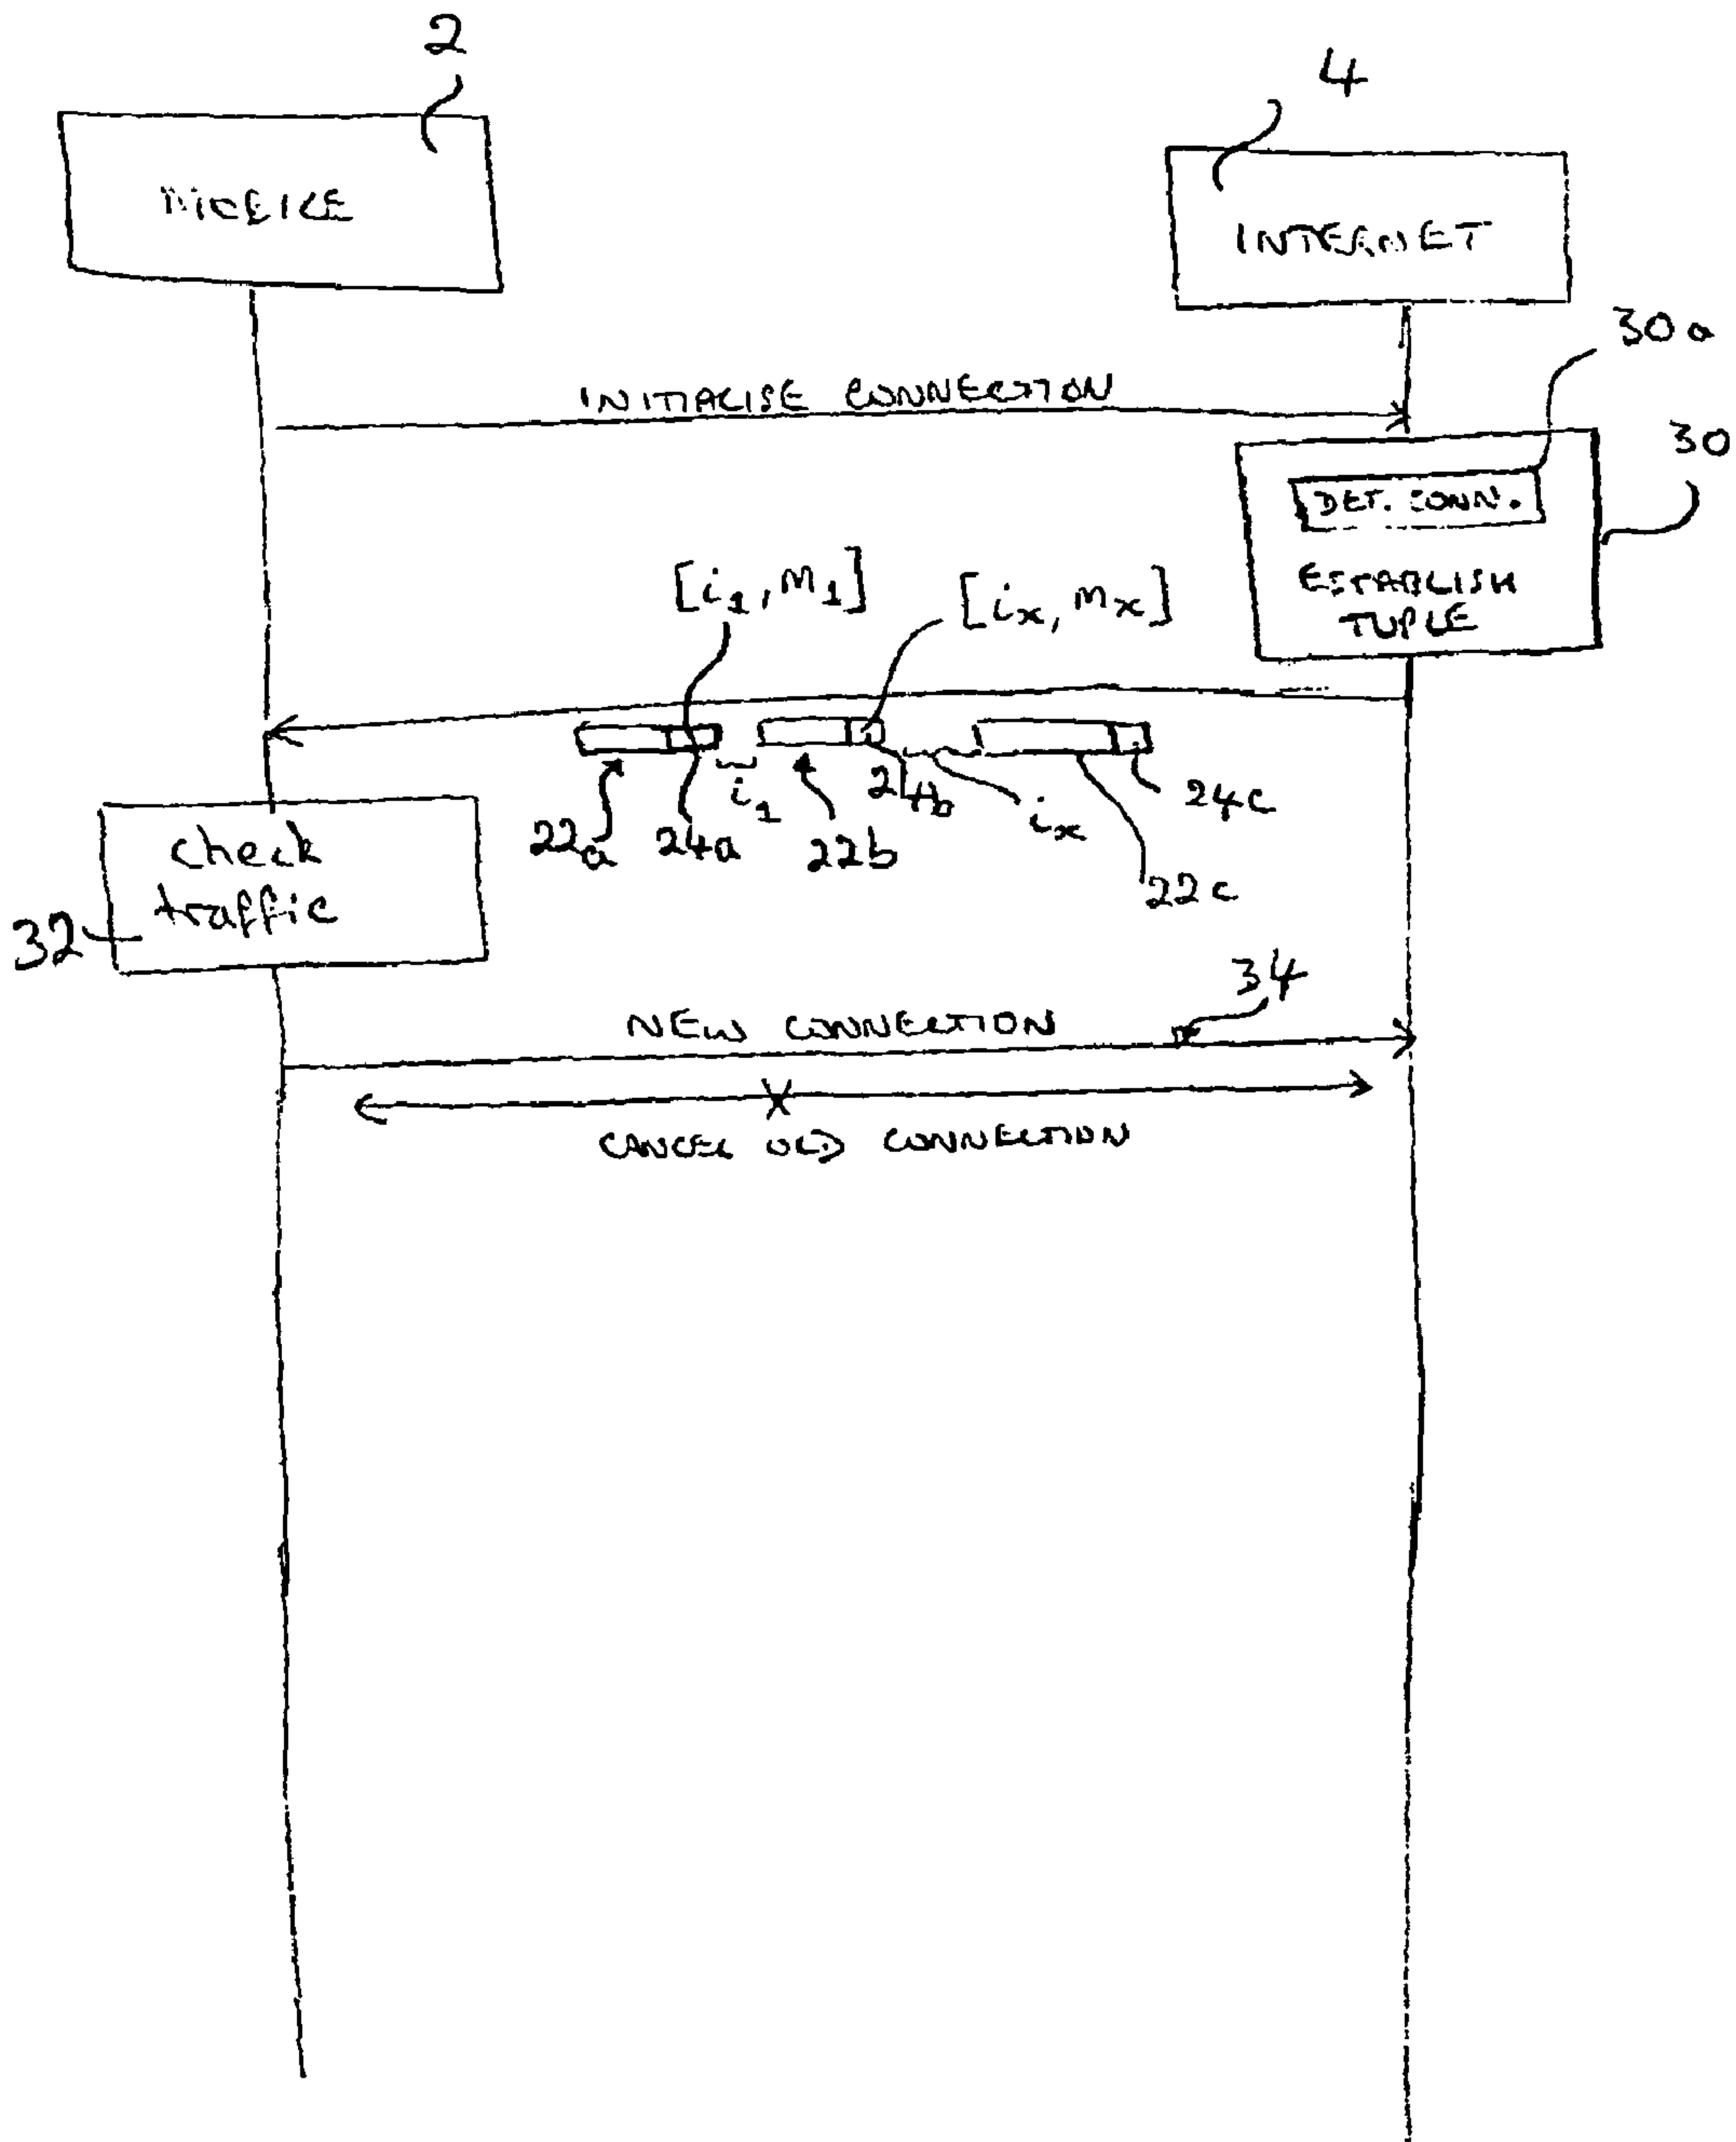 2
4
MOBILE
INTERNET
30a
INITIALISE CONNECTION
30
DET. CONN.
ESTABLISH
TUPLE
[i1, m1]
[ix, mx]
i1
24b
ix
24c
22a
24a
22b
22c
check
traffic
32
34
NEW CONNECTION
CANCEL OLD CONNECTION